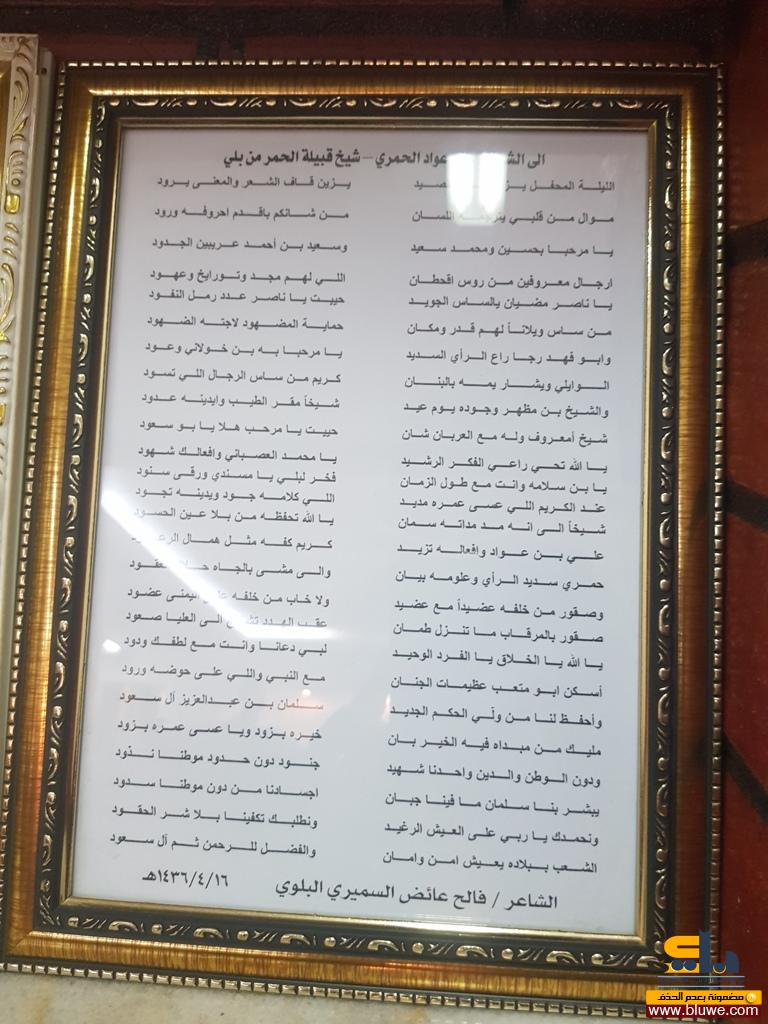 الى الشـ عواد الحمري – شيخ قبيلة الحمر من بلي
الليلة المحفل يـز صيد يـزين قـاف الشعر والمعنى يـرود
موال مـن قلبي اللسان مـن شـانكم باقـدم احروفـه ورود
يـا مرحبـا بحسـين ومحمـد سعيد وسـعيد بـن أحمـد عـريبين الجـدود
ارجـال معـروفين مـن روس اقحطـان اللـي لهـم مجـد وتـورايخ وعهـود
يـا ناصـر مضـيان يالسـاس الجويـد حييـت يـا ناصـر عـدد رمل النفـود
مـن سـاس ويلانـاً لهـم قـدر ومكـان حمايـة المضـهود لاجتـه الضـهود
وابـو فهـد رجـا راع الـرأي السـديد يـا مرحبـا به بـن خـولاني وعـود
الـوايلي ويشـار يمـه بالبنـان كـريم مـن سـاس الرجـال اللـي تسـود
والشـيخ بـن مظهـر وجـوده يـوم عيـد شـيخاً مقـر الطيـب وايدينـه عـدود
شـيخ أمعـروف ولـه مـع العربـان شـان حييـت يـا مرحـب هـلا يـا بـو سـعود
يـا الله تحـي راعـي الفكـر الرشـيد يـا محمـد العصـباني وافعالـك شـهود
يـا بـن سـلامه وانـت مـع طـول الزمـان فخـر لبلـي يـا مسـندي ورقـى سـنود
عنـد الكـريم اللـي عسـى عمـره مديـد اللـي كلامـه جـود ويدينـه تجـود
شـيخاً الـى انـه مـد مداتـه سـمان يـا الله تحفظـه مـن بـلا عـين الحسـود
علـي بـن عـواد وافعالـه تزيـد كـريم كفـه مثـل همـال
حمـري سـديد الـرأي وعلومـه بيـان والـى مشـى بالجـاه
وصـقور مـن خلفـه عضـيداً مـع عضـيد ولا خـاب مـن خلفـه اليمنـى عضـود
صـقور بالمرقـاب مـا تنـزل طمـان عقـب الهـدد الـى العليـا صـعود
يـا الله يـا الخـلاق يـا الفـرد الوحيـد لبـي دعانـا وانـت مـع لطفـك ودود
أسـكن ابـو متعـب عظيمـات الجنـان مـع النبـي واللـي علـى حوضـه ورود
وأحفـظ لنـا مـن ولّـي الحكـم الجديـد سـلمان بـن عبـدالعزيز آل سـعود
مليـك مـن مبـداه فيـه الخيـر بـان خيـره بـزود ويـا عسـى عمـره بـزود
ودون الـوطن والـدين واحـدنا شـهيد جنـود دون حـدود موطنـا نـذود
يبشـر بنـا سـلمان مـا فينـا جبـان اجسـادنا مـن دون موطنـا سـدود
ونحمـدك يـا ربـي علـى العـيش الرغيـد ونطلبـك تكفينـا بـلا شـر الحقـود
الشـعب بـبلاده يعـيش امـن وامـان والفضـل للـرحمن ثـم آل سـعود
الشاعر / فالح عائض السميري البلوي ١٤٣٦/٤/١٦هـ
بلي
مضمونة بعدم الحذف
www.bluwe.com